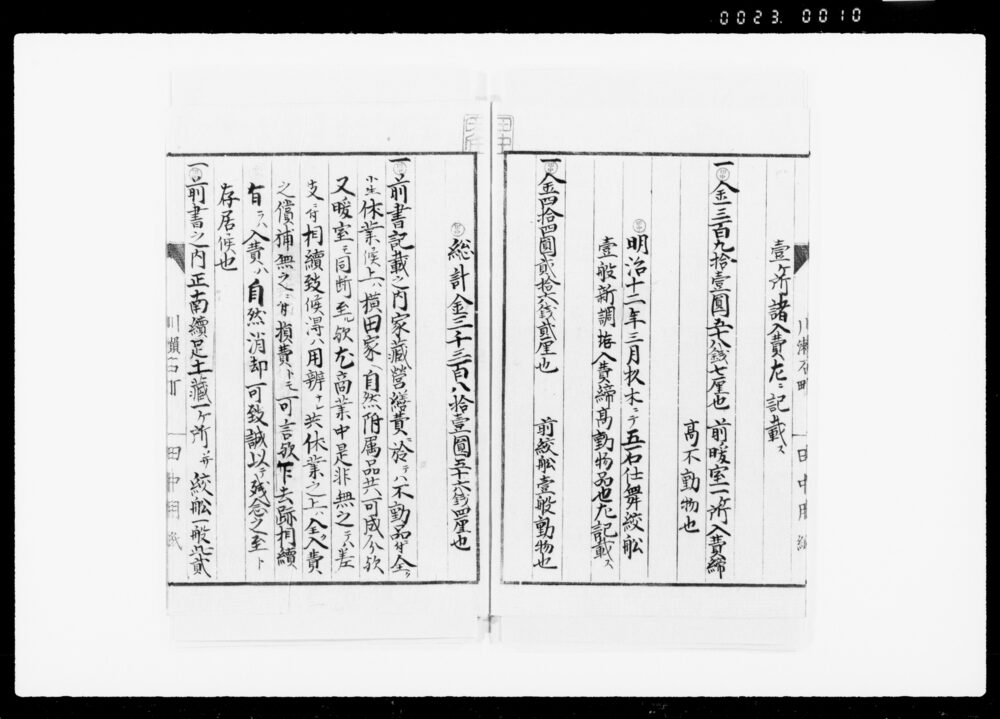 0023 0010
壹ヶ所諸入費左ニ記載ス
一金三百九拾壹圓五十八銭七厘也 前暖室一ヶ所入費締
高不動物也
明治十二年三月杦木ニテ五石仕舞絞舩
壹般新調諸入費締高動物品也左記載ス
一金四拾四圓貳拾六銭貳厘也 前絞舩壹般動物也
総計金三千三百八拾壹圓五十六銭四厘也
一前書記載之内家藏営繕費ニ於テハ不動品ニ付全ク
小生休業候上ハ横田家ヘ自然附属品共ハ可成分欤
又暖室ニ同断至ル欤尤商業中是非無之テハ差
支ニ付相續致候得ハ用辨ナレ共休業之上ハ全ク入費
之償補無之ニ付損費トモ可言欤乍去跡相續
有ラハ入費ハ自然消却可致誠以テ残念之至ト
存居候也
一前書之内正南續足土藏一ヶ所并絞舩一般此貳
川瀬石町
田中用紙
田中用紙